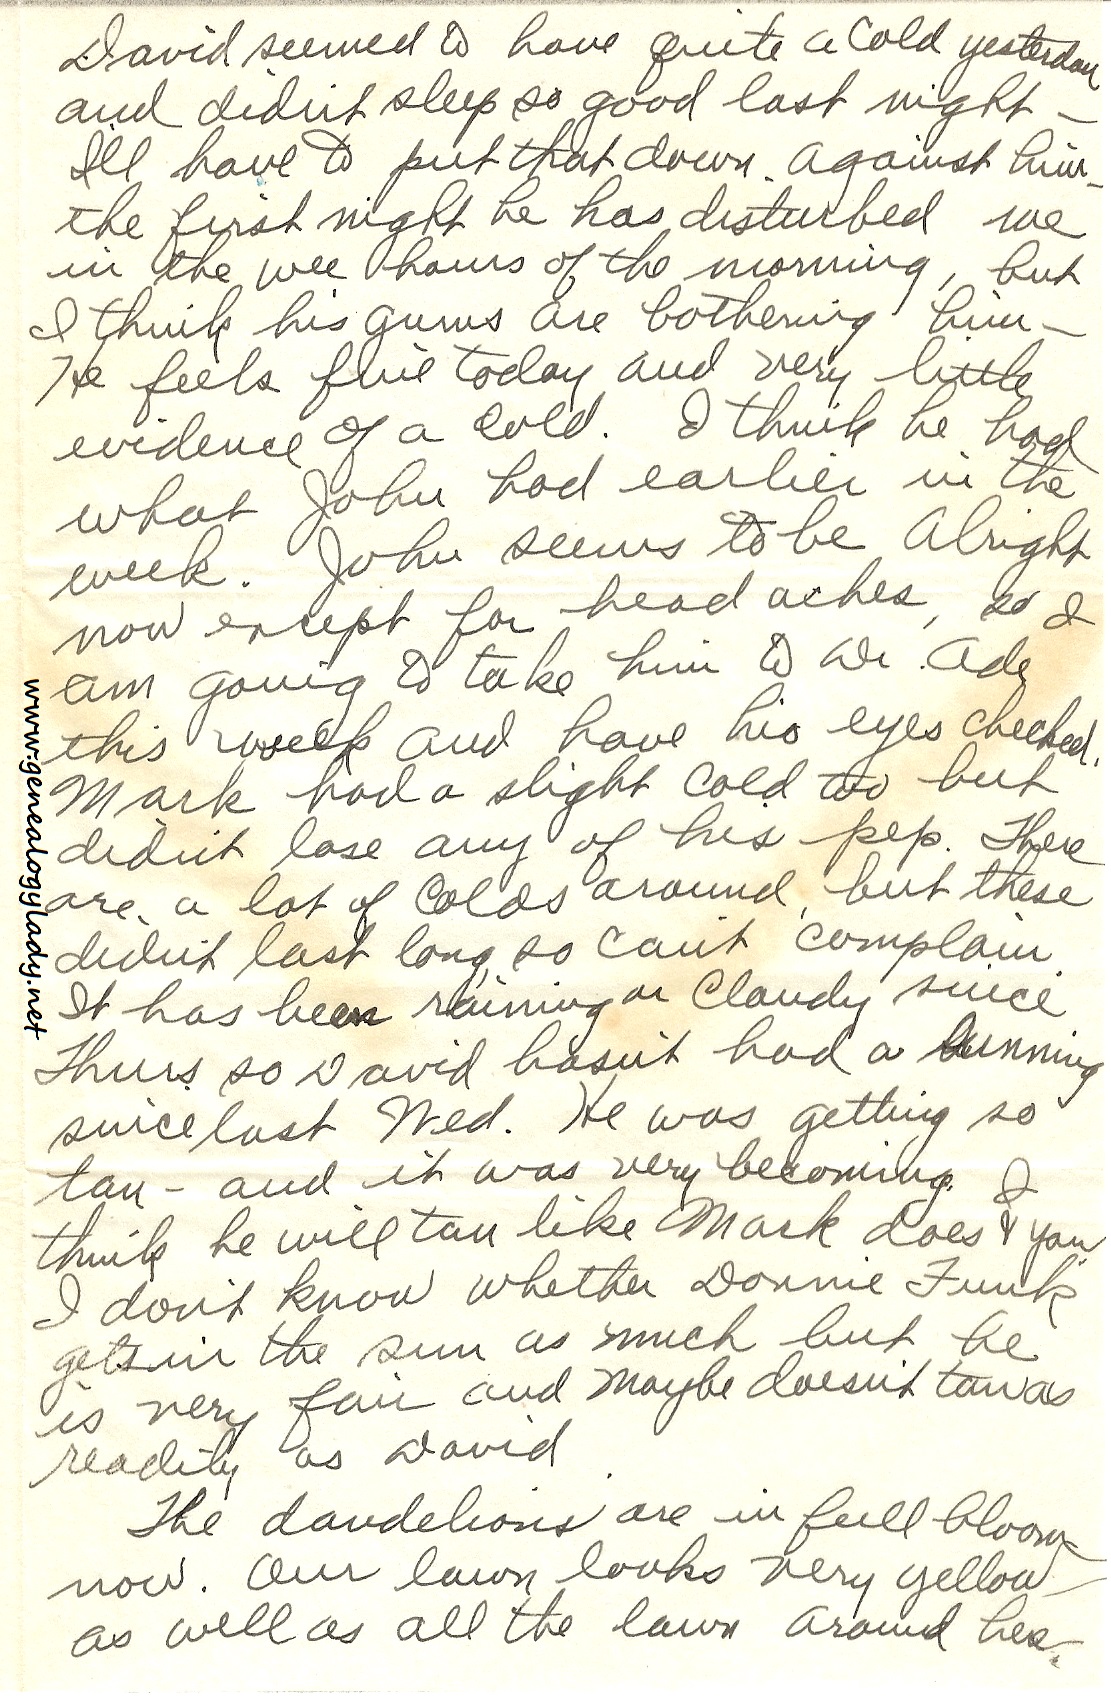 David seemed to have quite a cold yesterday
and didn't sleep so good last night –
I'll have to put that down against him –
the first night he has disturbed me
in the wee hours of the morning, but
I think his gums are bothering him –
He feels fine today and very little
evidence of a cold. I think he had
what John had earlier in the
week. John seems to be alright
now except for head aches, so I
am going to take him to Dr. Ade
this week and have his eyes checked.
Mark had a slight cold too but
didn't lose any of his pep. There
are a lot of colds around, but these
didn't last long, so can't complain.
It has been raining or cloudy since
Thurs so David hasn't had a sunning
since last Wed. He was getting so
tan – and it was very becoming. I
think he will tan like Mark does & you.
I don't know whether Donnie Funk
gets in the sun as much but he
is very fair and maybe doesn't tan as
readily as David.
The dandelions are in full bloom
now. Our lawn looks very yellow –
as well as all the lawn around here.
www.genealogylady.net